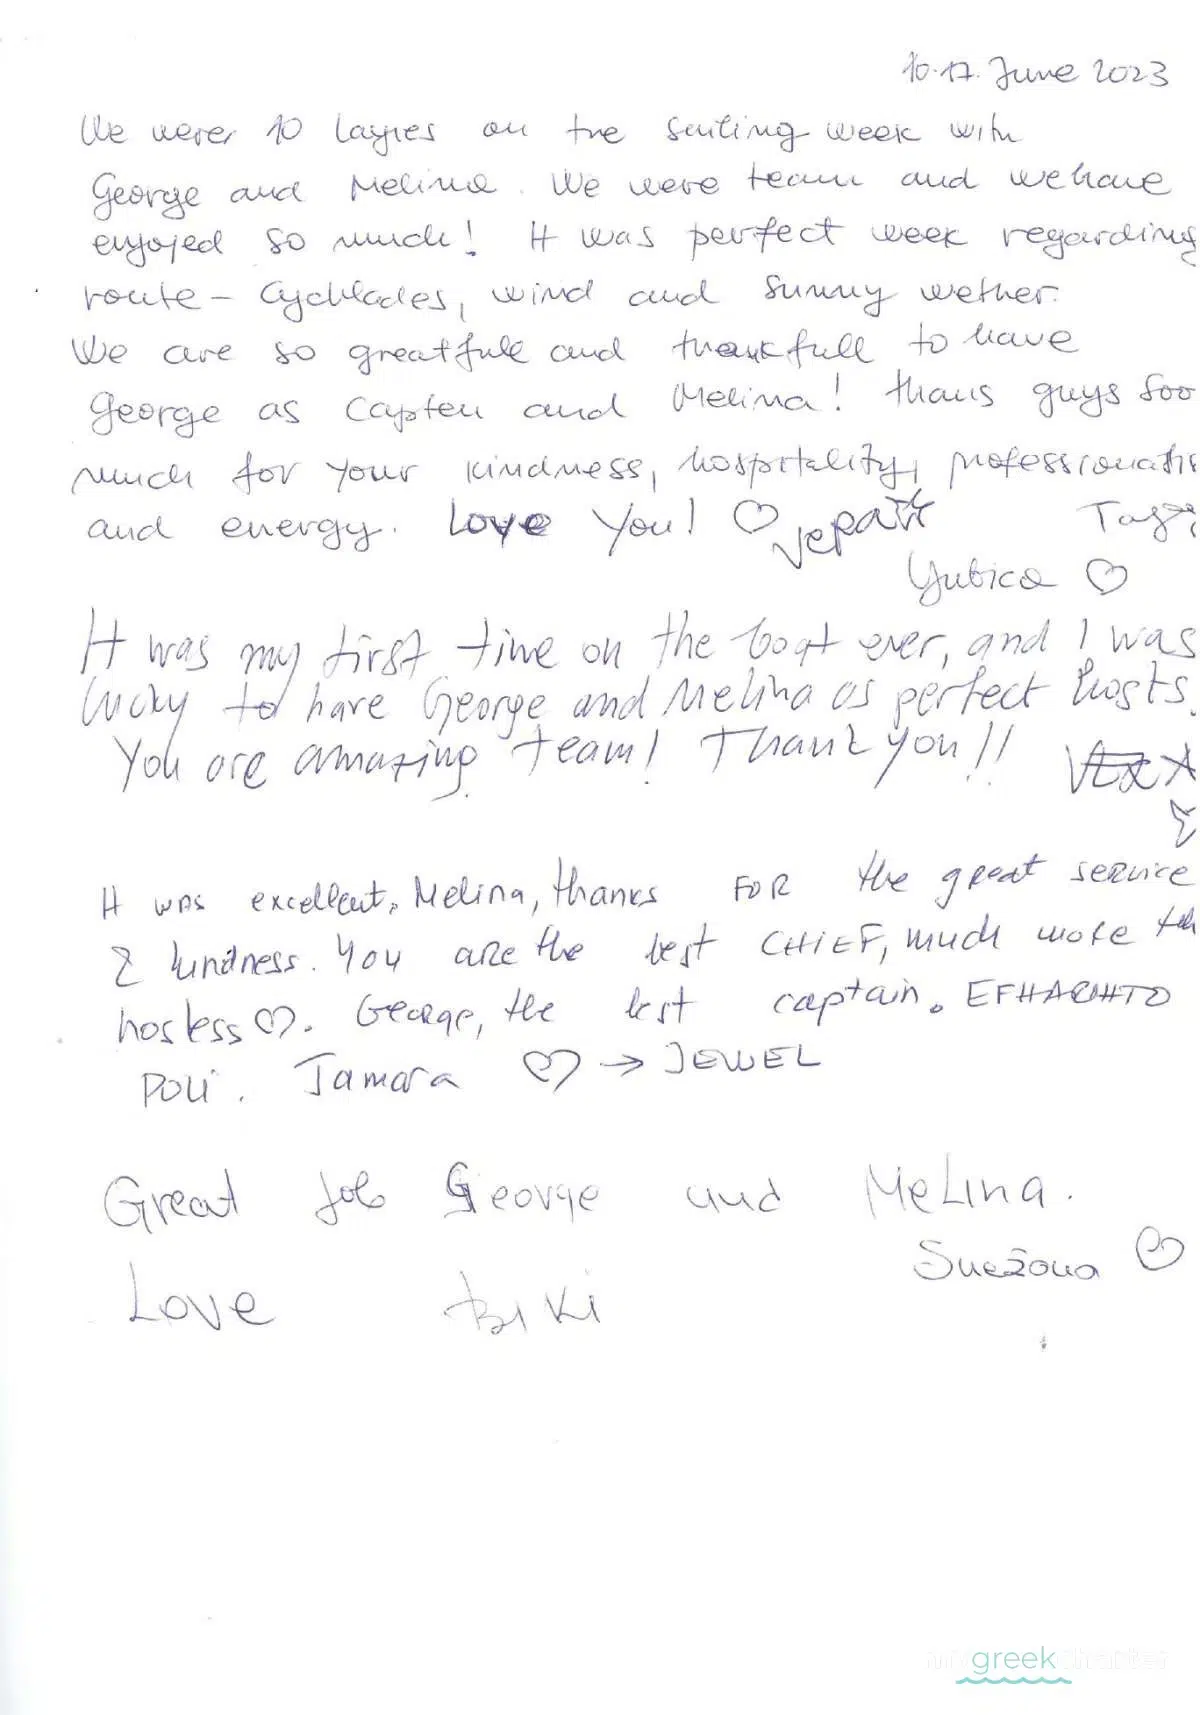 10-17. June 2023
We were 10 Lagies on the sailing week with
George and Melina. We were team and we have
enjojed so much! It was perfect week regarding
route - Cycklades, wind and sunny wether.
We are so greatfull and thankfull to have
George as Capten and Melina! thans guys soo
much for your kindness, hospitality, professionalis
and energy. Love You! ♡
♡
It was my first time on the boat ever, and I was
lucky to have George and Melina as perfect hosts.
You are amazing team! Thank you!!
It was excellent, Melina, thanks FOR the great service
& kindness. You are the best CHIEF, much more
hostess ♡. George, the best captain. EFHARIHTO
POLI. Tamara ♡ → JEWEL
Great job George and Melina.
Snežana ♡
Love BIKI
my greek charter